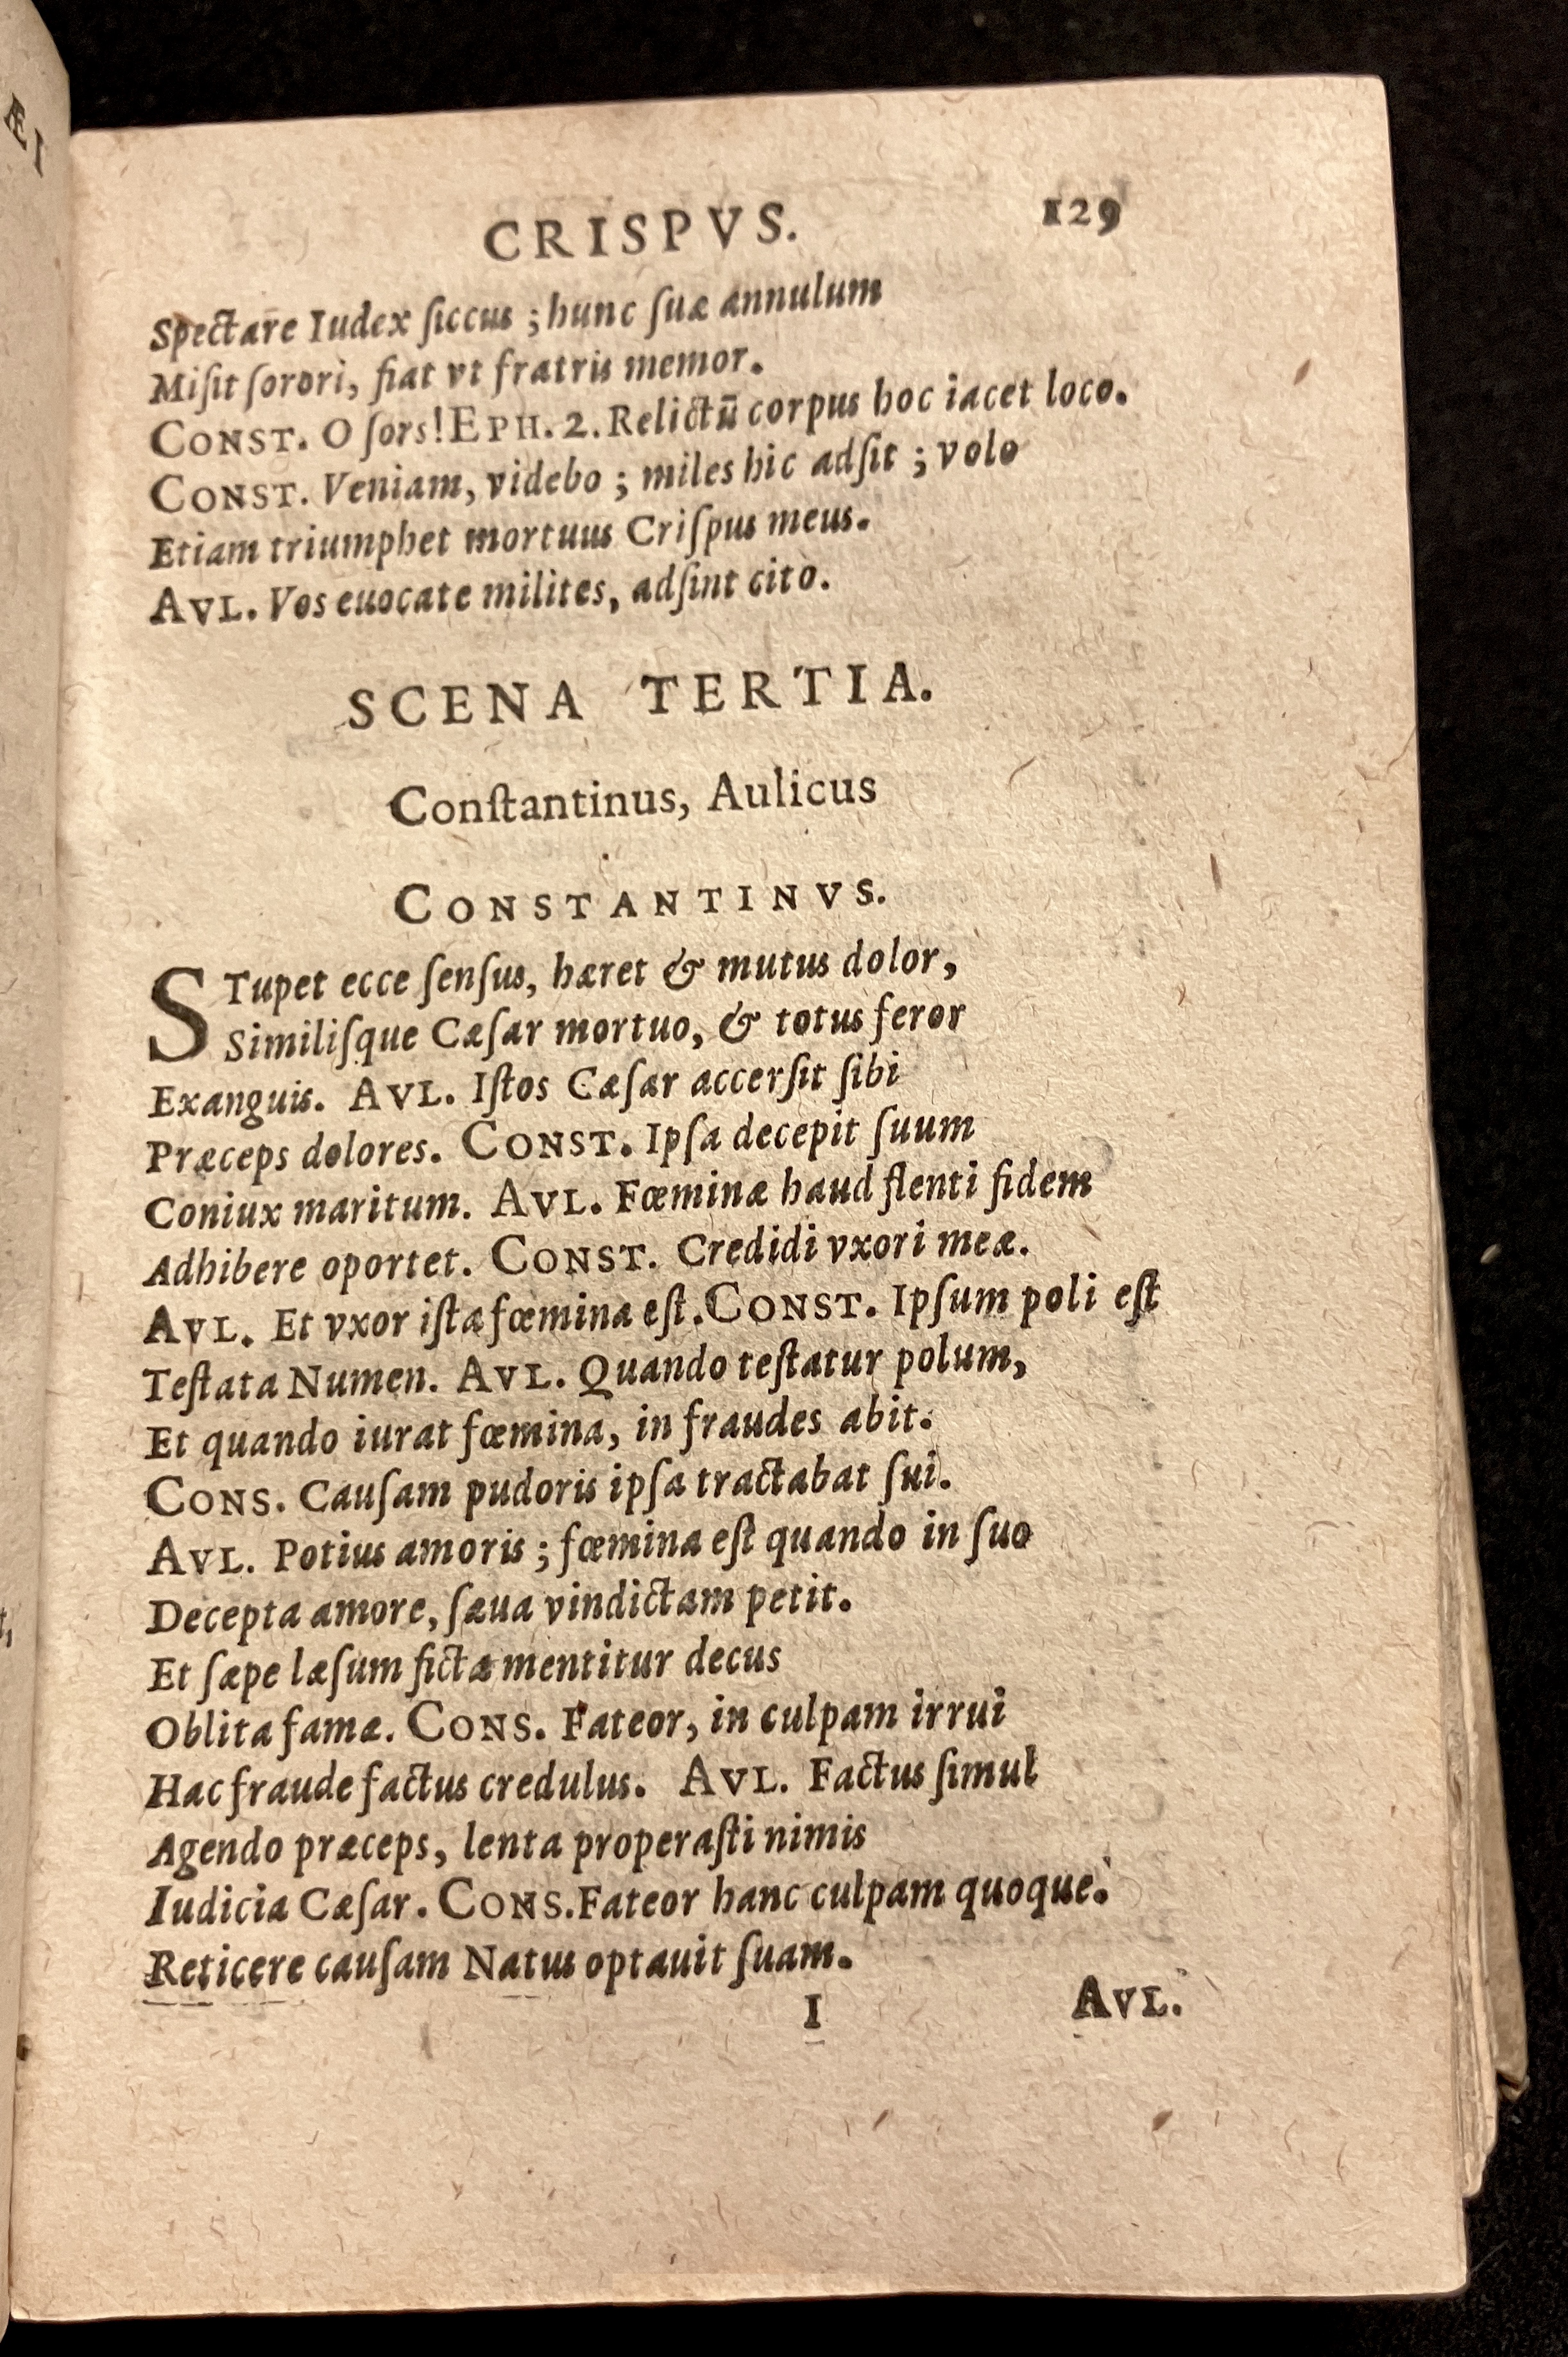 ÆI
CRISPVS. 129
Spectare Iudex ſiccus ; hunc ſuæ annulum
Miſit ſorori, fiat vt fratris memor.
CONST. O ſors! EPH. 2. Relictū corpus hoc iacet loco.
CONST. Veniam, videbo ; miles hic adſit ; volo
Etiam triumphet mortuus Criſpus meus.
AVL. Vos euocate milites, adſint cito.
SCENA TERTIA.
Conſtantinus, Aulicus
CONSTANTINVS.
STupet ecce ſenſus, hæret & mutus dolor,
Similiſque Cæſar mortuo, & totus feror
Exanguis. AVL. Iſtos Cæſar accerſit ſibi
Præceps dolores. CONST. Ipſa decepit ſuum
Coniux maritum. AVL. Fœminæ haud flenti fidem
Adhibere oportet. CONST. Credidi vxori meæ.
AVL. Et vxor iſta fœmina eſt. CONST. Ipſum poli eſt
Teſtata Numen. AVL. Quando teſtatur polum,
Et quando iurat fœmina, in fraudes abit.
CONS. Cauſam pudoris ipſa tractabat ſui.
AVL. Potius amoris ; fœmina eſt quando in ſuo
Decepta amore, ſæua vindictam petit.
Et ſæpe læſum ficta mentitur decus
Oblita famæ. CONS. Fateor, in culpam irrui
Hac fraude factus credulus. AVL. Factus ſimul
Agendo præceps, lenta properaſti nimis
Iudicia Cæſar. CONS. Fateor hanc culpam quoque.
Reticere cauſam Natus optauit ſuam.
I AVL.